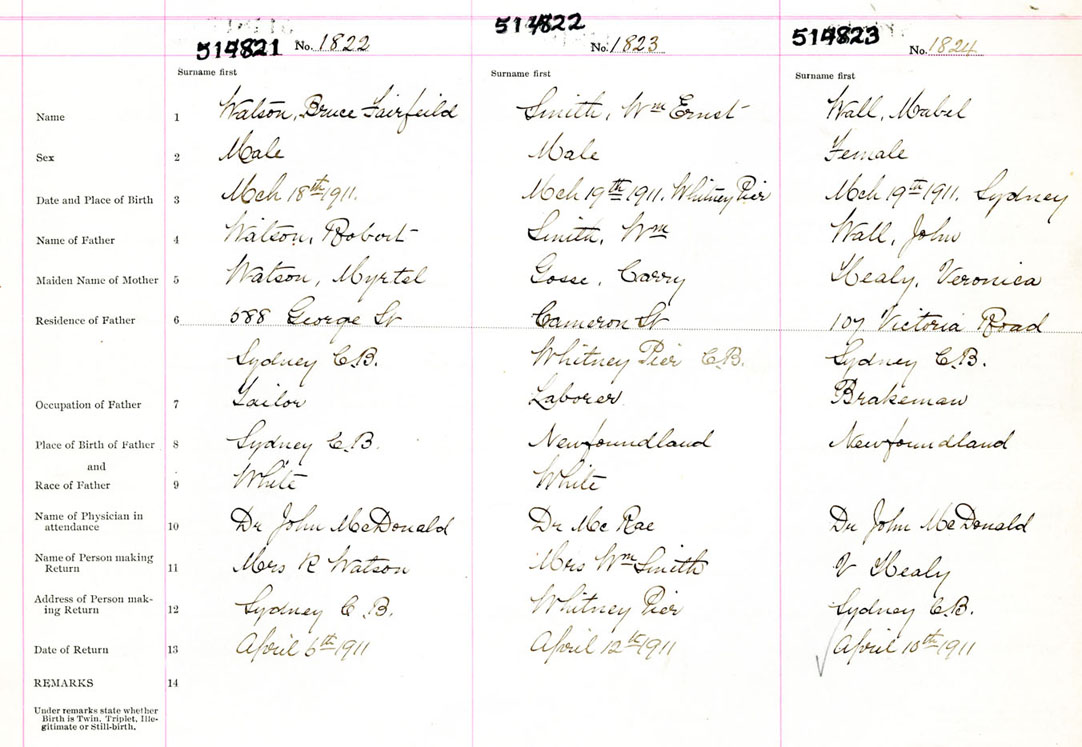 514821 No. 1822
514822 No. 1823
514823 No. 1824
Surname first Surname first Surname first
Name 1 Watson, Bruce Fairfeild Smith, Wm Ernst Wall, Mabel
Sex 2 Male Male Female
Date and Place of Birth 3 Mch 18th 1911. Mch 19th 1911. Whitney Pier Mch 19th 1911. Sydney
Name of Father 4 Watson, Robert Smith, Wm Wall, John
Maiden Name of Mother 5 Watson, Myrtel Gosse, Carry Healy, Veronica
Residence of Father 6 588 George St Cameron St 107 Victoria Road
Sydney C.B. Whitney Pier C.B. Sydney C.B.
Occupation of Father 7 Tailor Laborer Brakeman
Place of Birth of Father 8 Sydney C.B. Newfoundland Newfoundland
and
Race of Father 9 White White
Name of Physician in
attendance 10 Dr John McDonald Dr Mc Rae Dr John McDonald
Name of Person making
Return 11 Mrs R Watson Mrs Wm Smith V Healy
Address of Person mak-
ing Return 12 Sydney C.B. Whitney Pier Sydney C.B.
Date of Return 13 April 6th 1911 April 12th 1911 April 10th 1911
REMARKS 14
Under remarks state whether
Birth is Twin, Triplet, Ille-
gitimate or Still-birth.